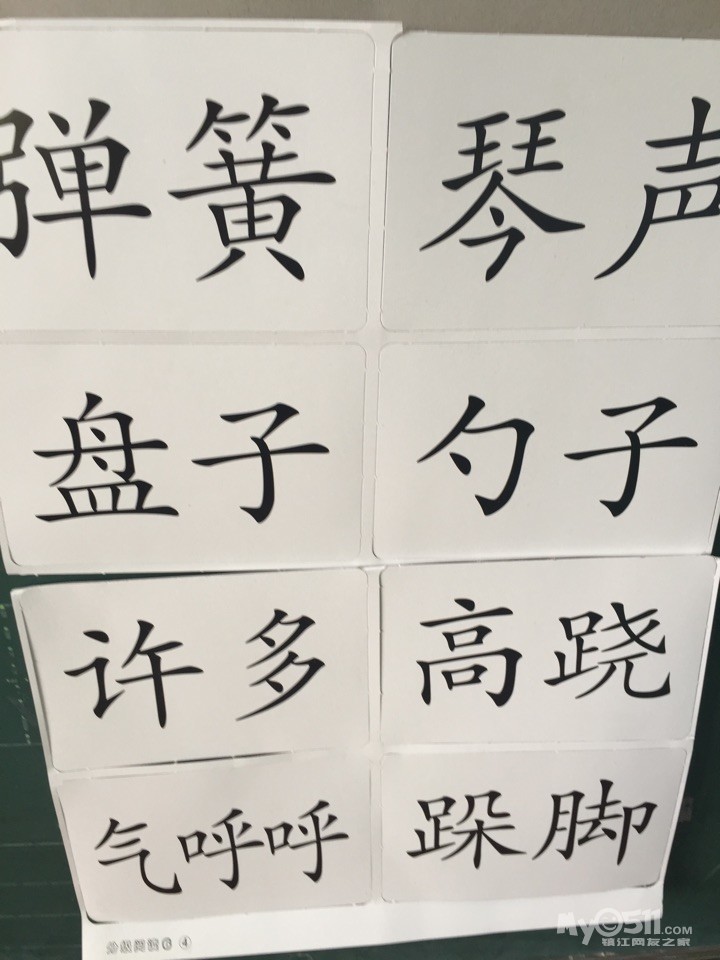 弹簧 琴声
盘子 勺子
许多 高跷
气呼呼 跺脚
④
My0511.com
镇江网友之家